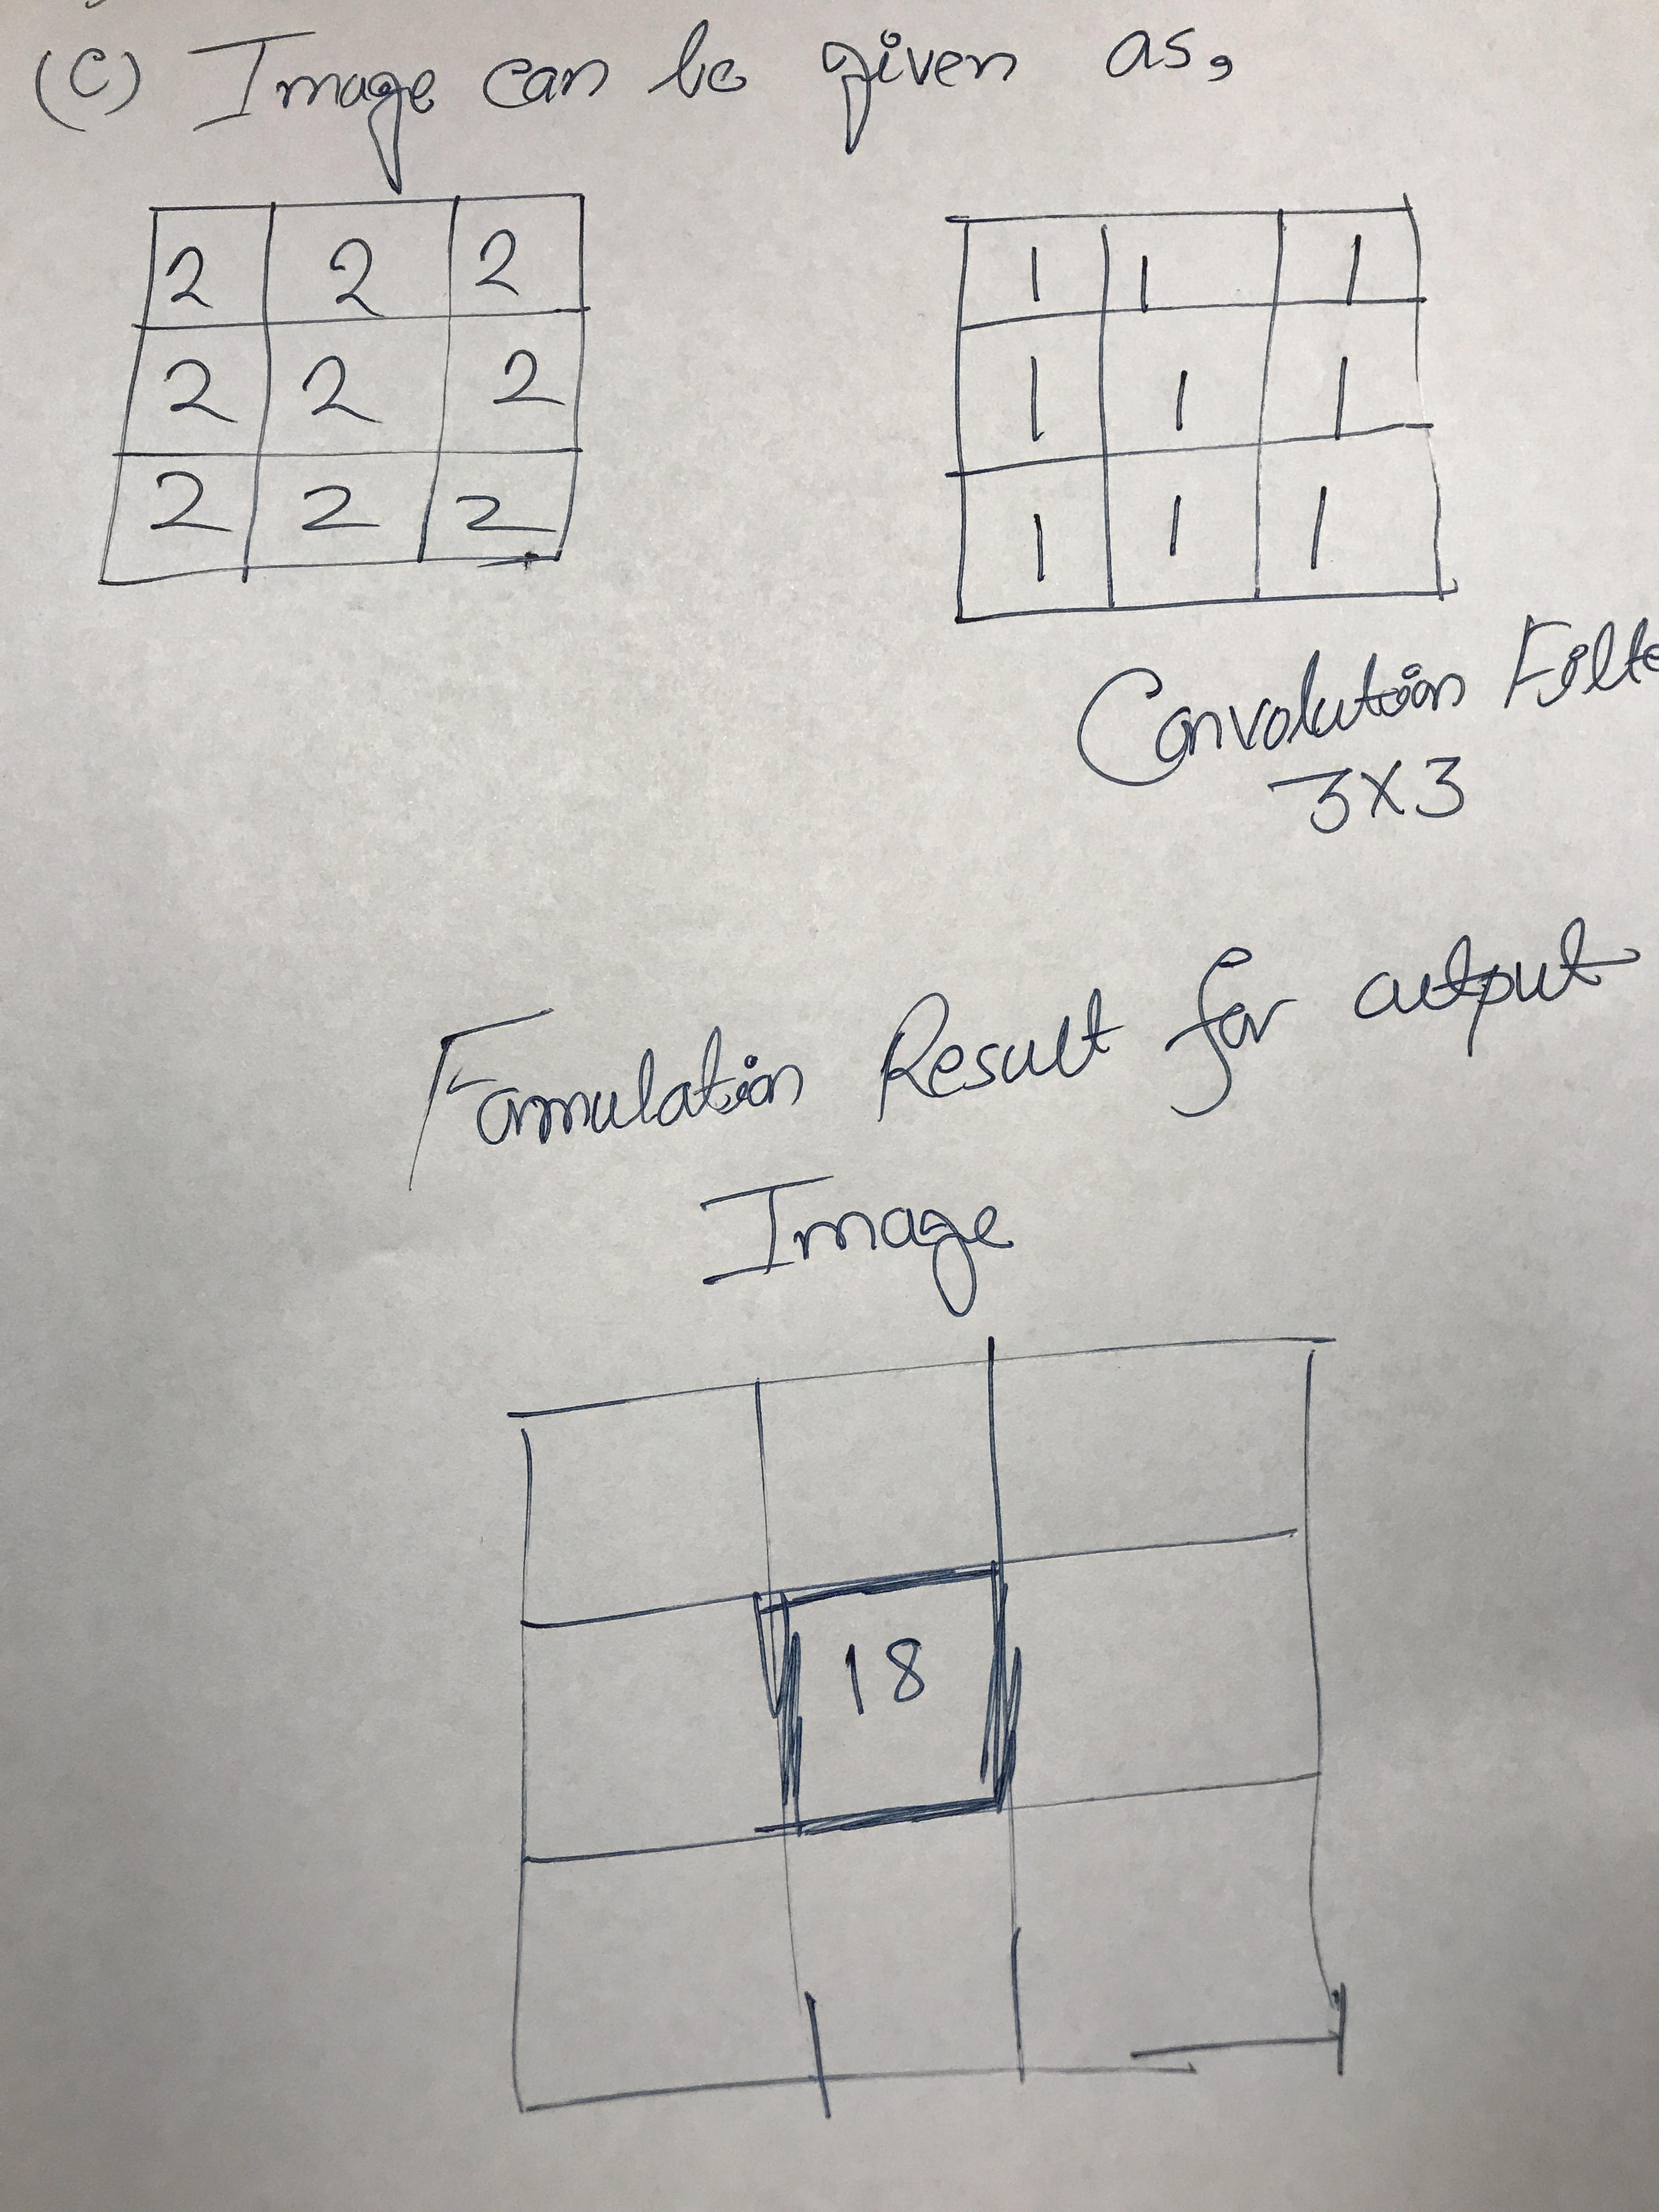 (C) Image can be given as,
2 2 2
2 2 2
2 2 2
1 1 1
1 1 1
1 1 1
Convolution Filte
3X3
Formulation Result for output
Image
18